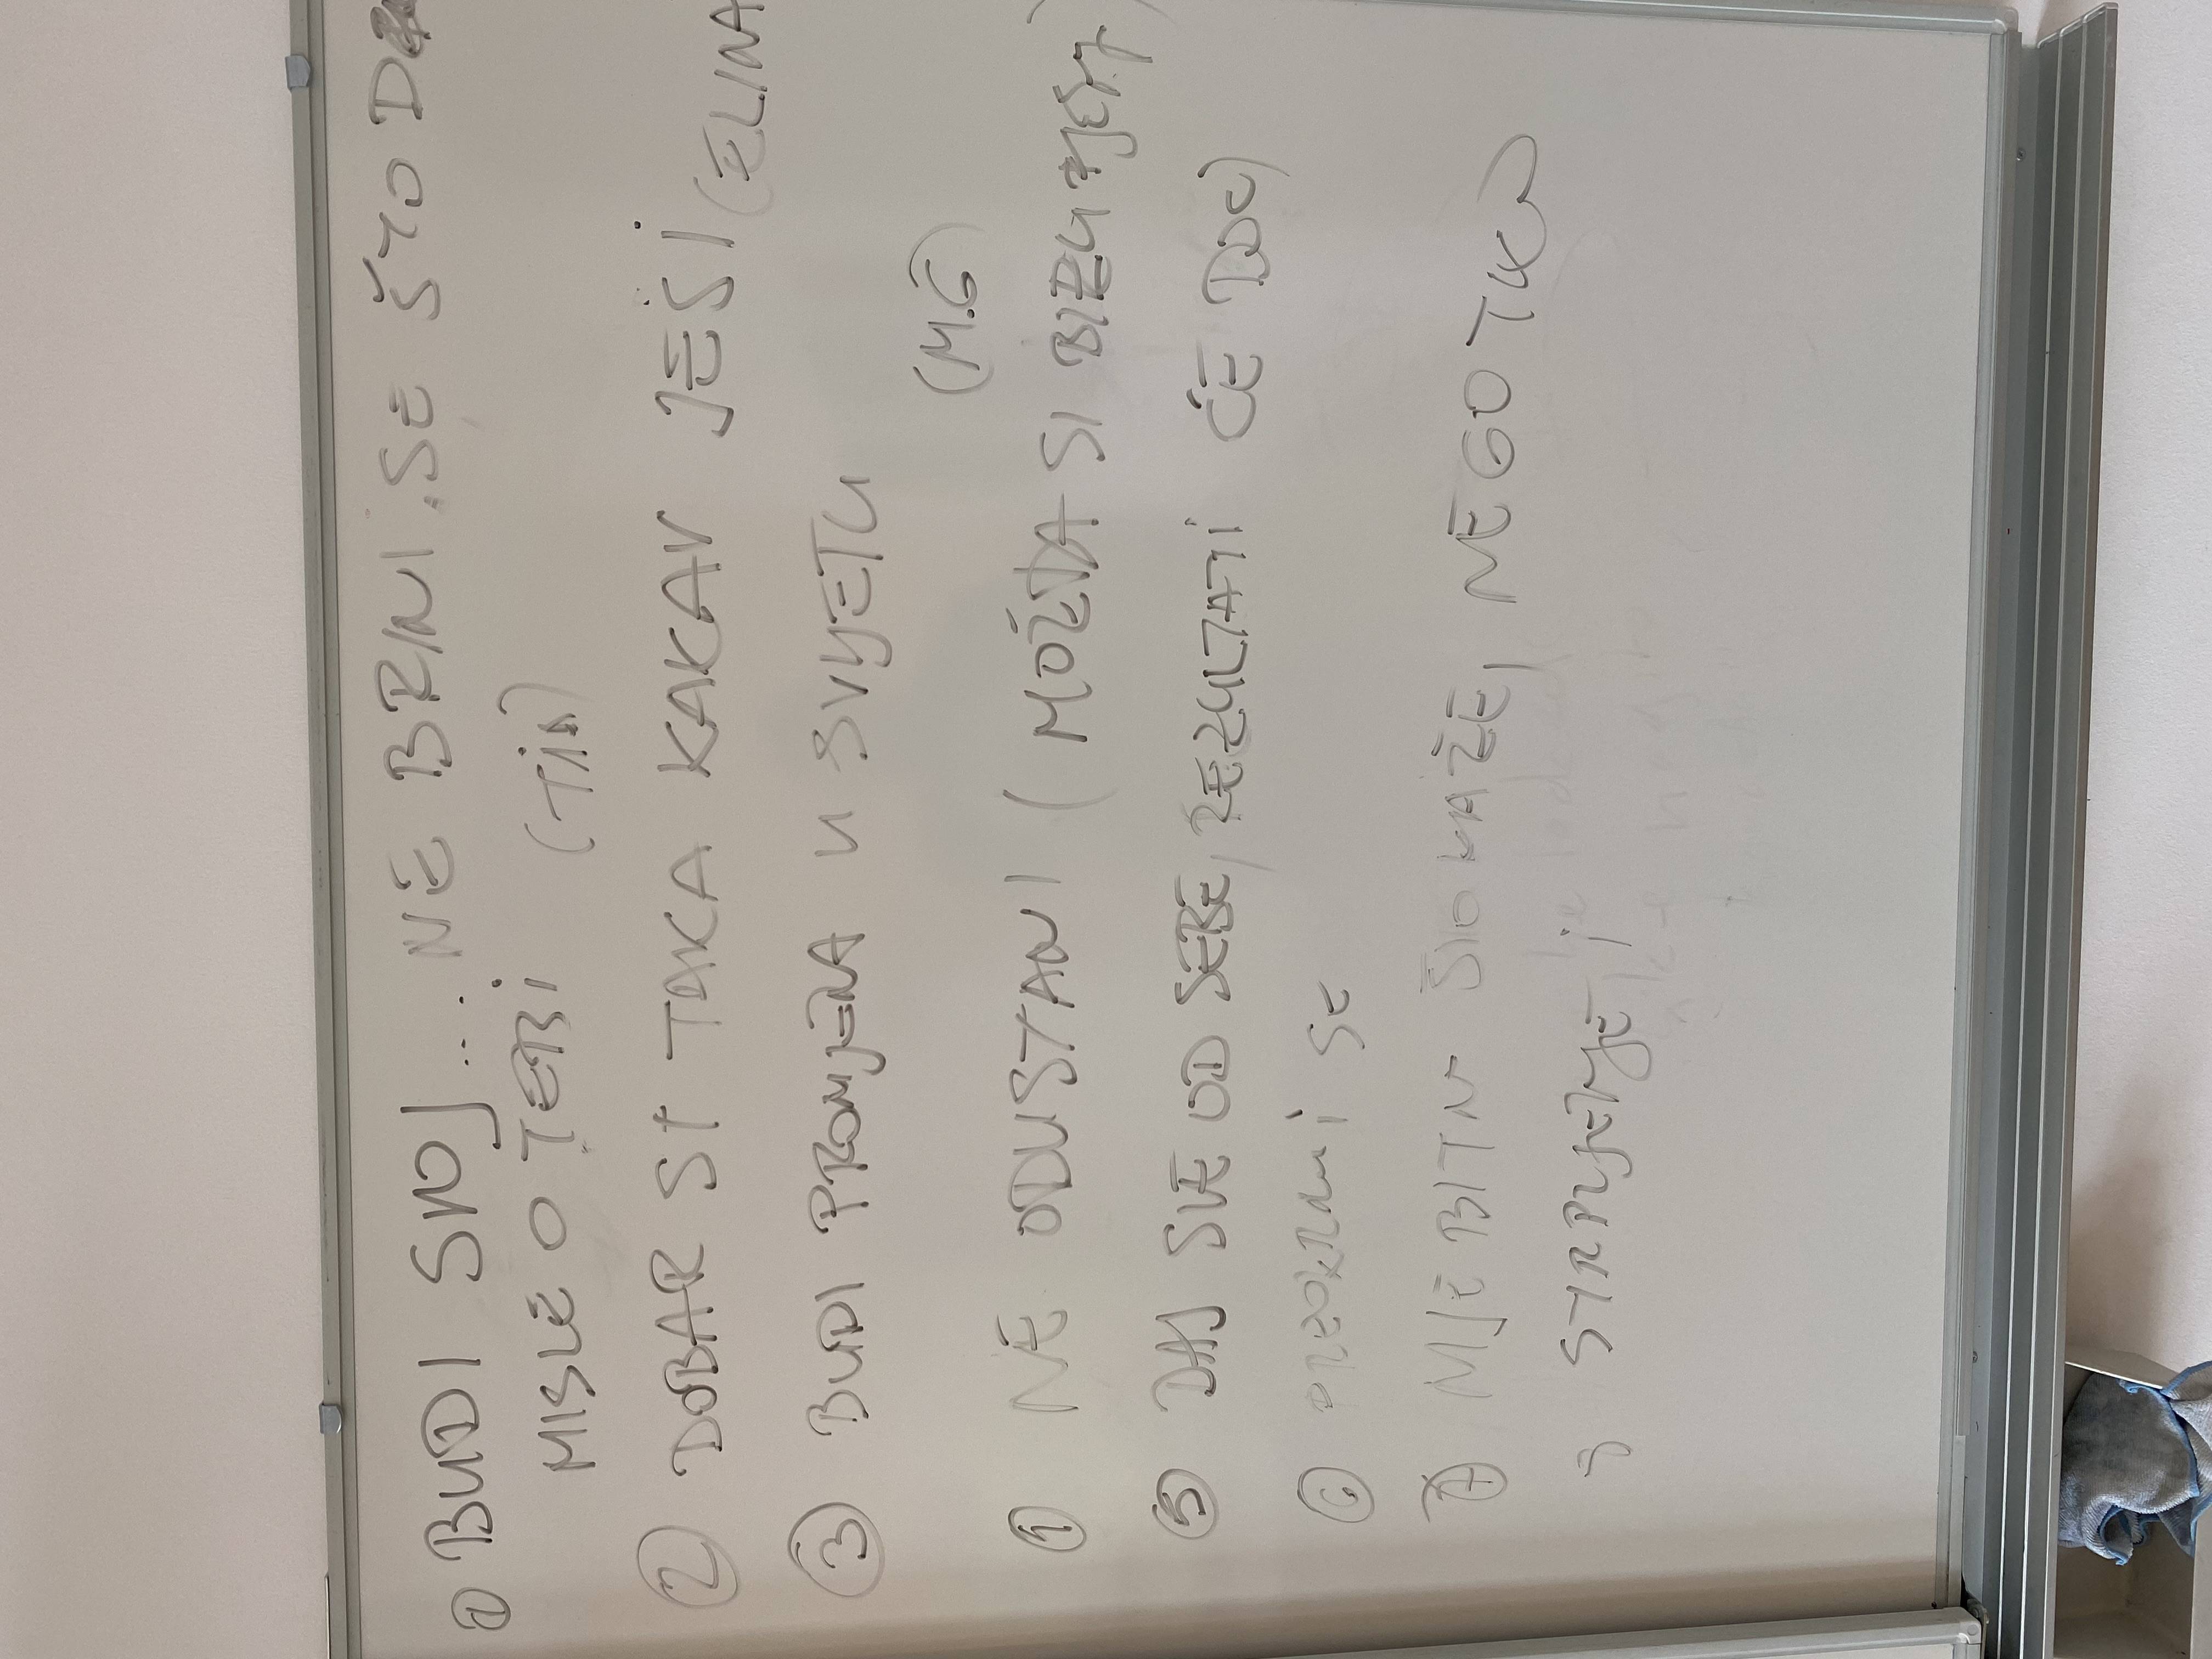 ① BUDI SVOJ... NE BRINI SE ŠTO
MISLE O TEBI (TIN)
② DOBAR SI TAKA KAKAV JESI (ELINA
③ BUDI PROMJENA U SVIJETU
(M.G)
NE ODUSTANI (MOŽDA SI BLIZU
⑤ DAJ SVE OD SEBE, REZULTATI ĆE DOĆ)
⑥ POKRENI SE
⑦ NIJE BITN NEGO TKO